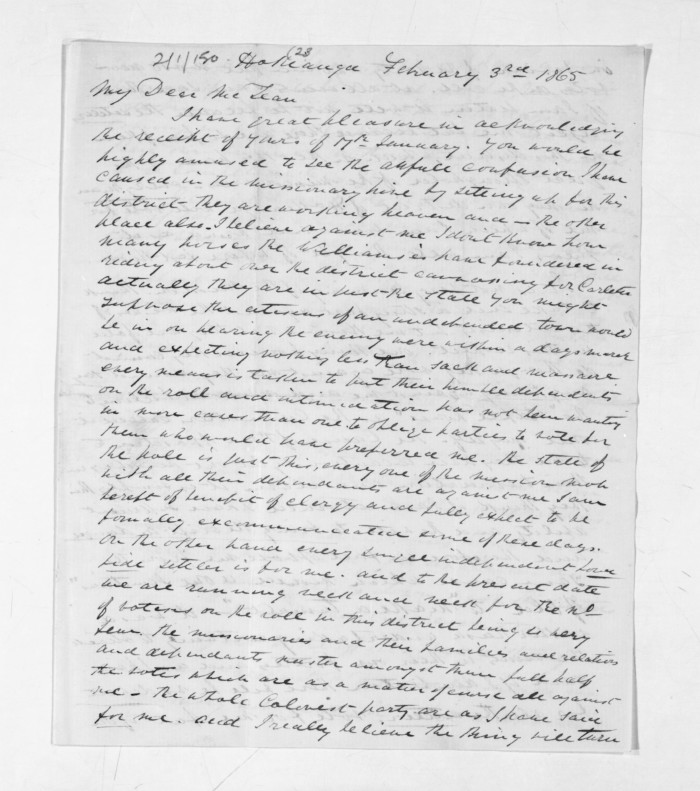 2/1/80. Hokianga February 3rd 1865
(28
My Dear McLean
I have great pleasure in acknowledging
the receipt of yours of 17th January. You would be
highly amused to see the awfull confusion I have
caused in the missionary hive by setting up for this
district they are working heaven and — the other
place also. I believe against me I dont know how
many horses the Williams's have foundered in
riding about over the district canvassing for Carleton
actually they are in just the state you might
suppose the citizens of an undefended town would
be in on hearing the enemy were within a days march
and expecting nothing less than sack and massacre
every means is taken to put their humble dependents
on the roll and intimidation has not been wanting
in more cases than one to oblige parties to vote for
them who would have preferred me. the state of
the pole is just this, every one of the mission mob
with all their dependants are against me I am
bereft of benefit of clergy and fully expect to be
formally excommunicated some of these days.
on the other hand every single independent bona
fide settler is for me. and to the present date
we are running neck and neck for the no
of voters on the roll in this district being so very
few the missionaries and their families and relatives
and dependants muster amongst them full half
the votes which are as a matter of course all against
me — the whole Colonist party are as I have said
for me. and I really believe the thing will turn